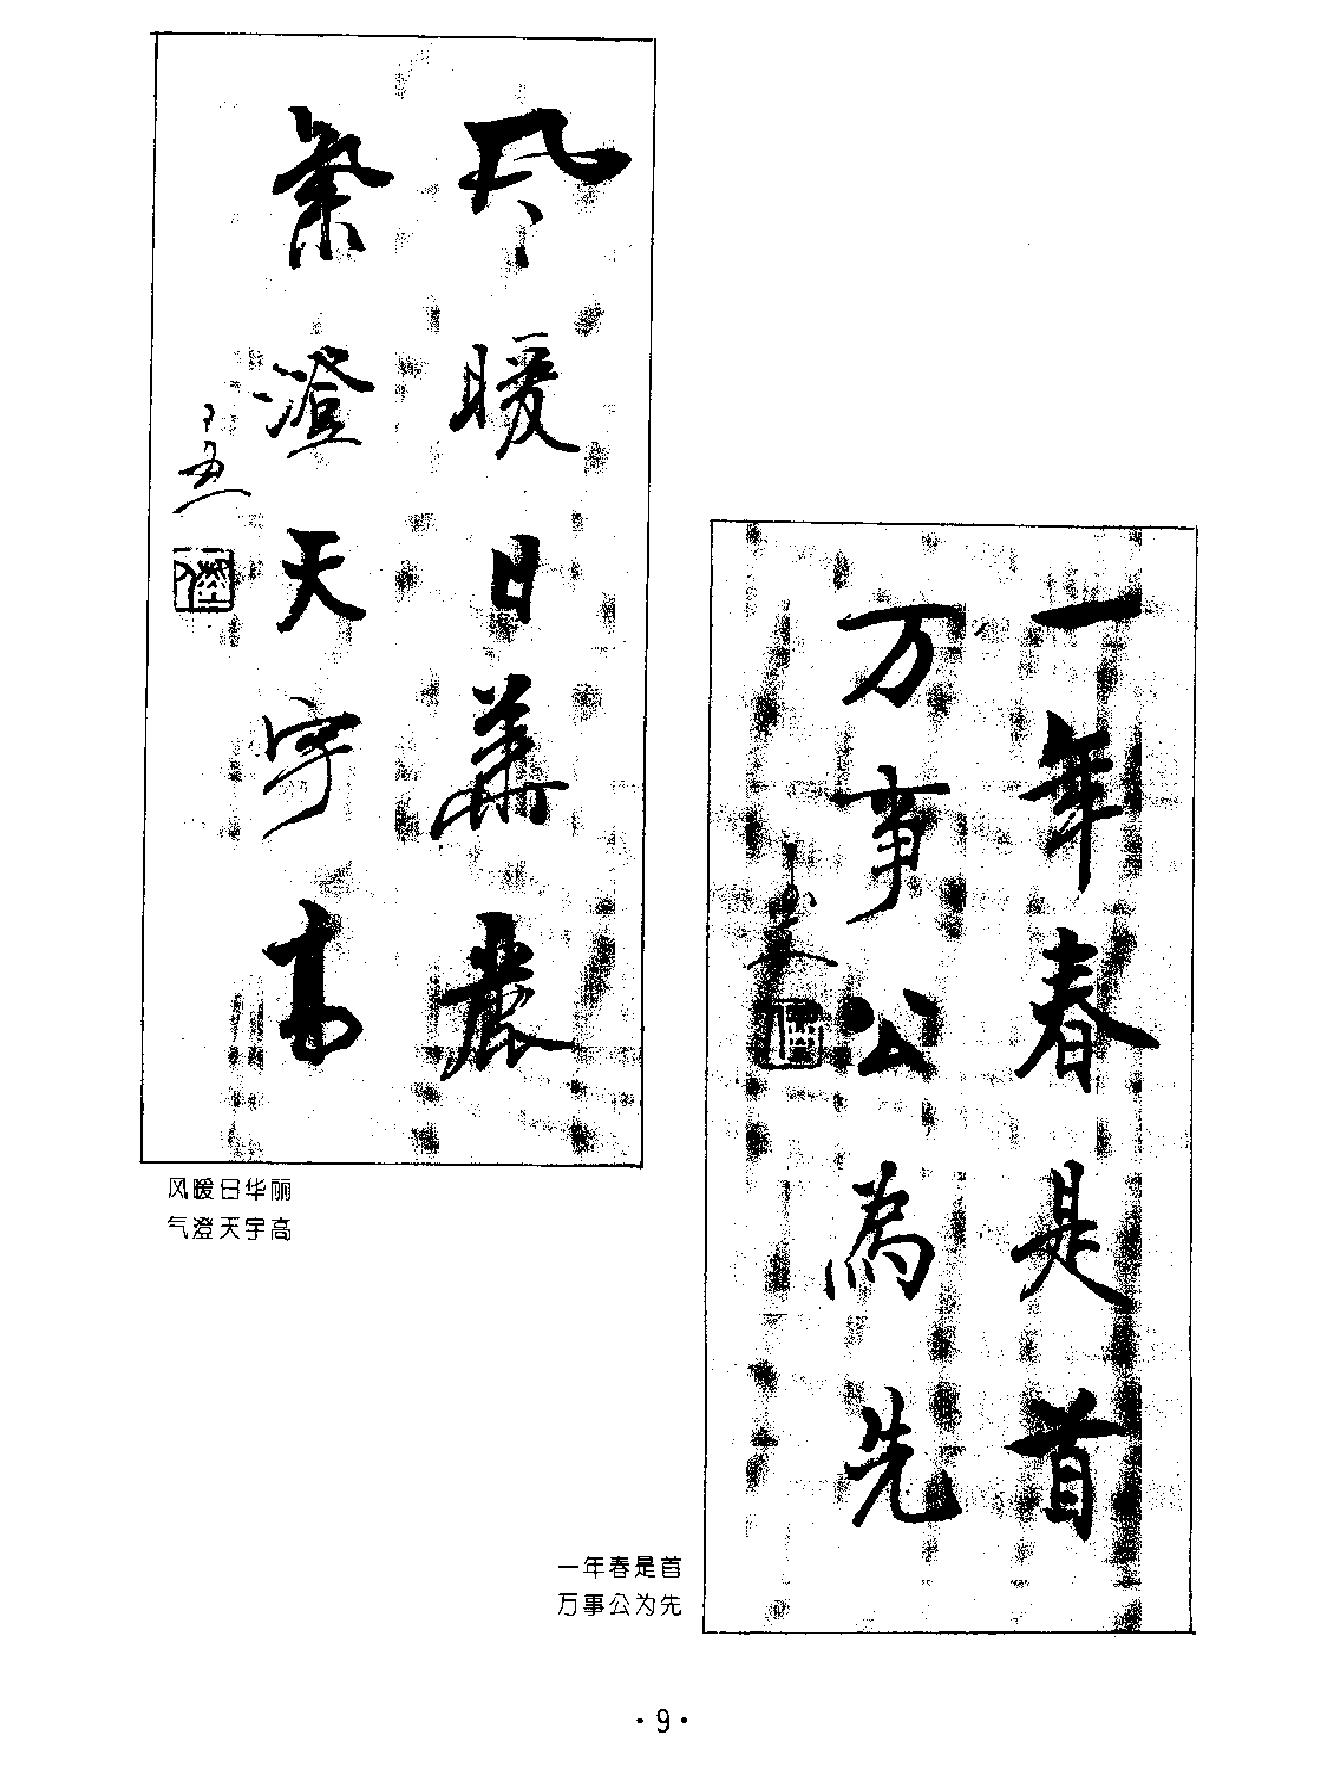 風暖日華麗
氣澄天宇高
风暖日华丽
气澄天宇高
一年春是首
万事公為先
一年春是首
万事公为先
·9·